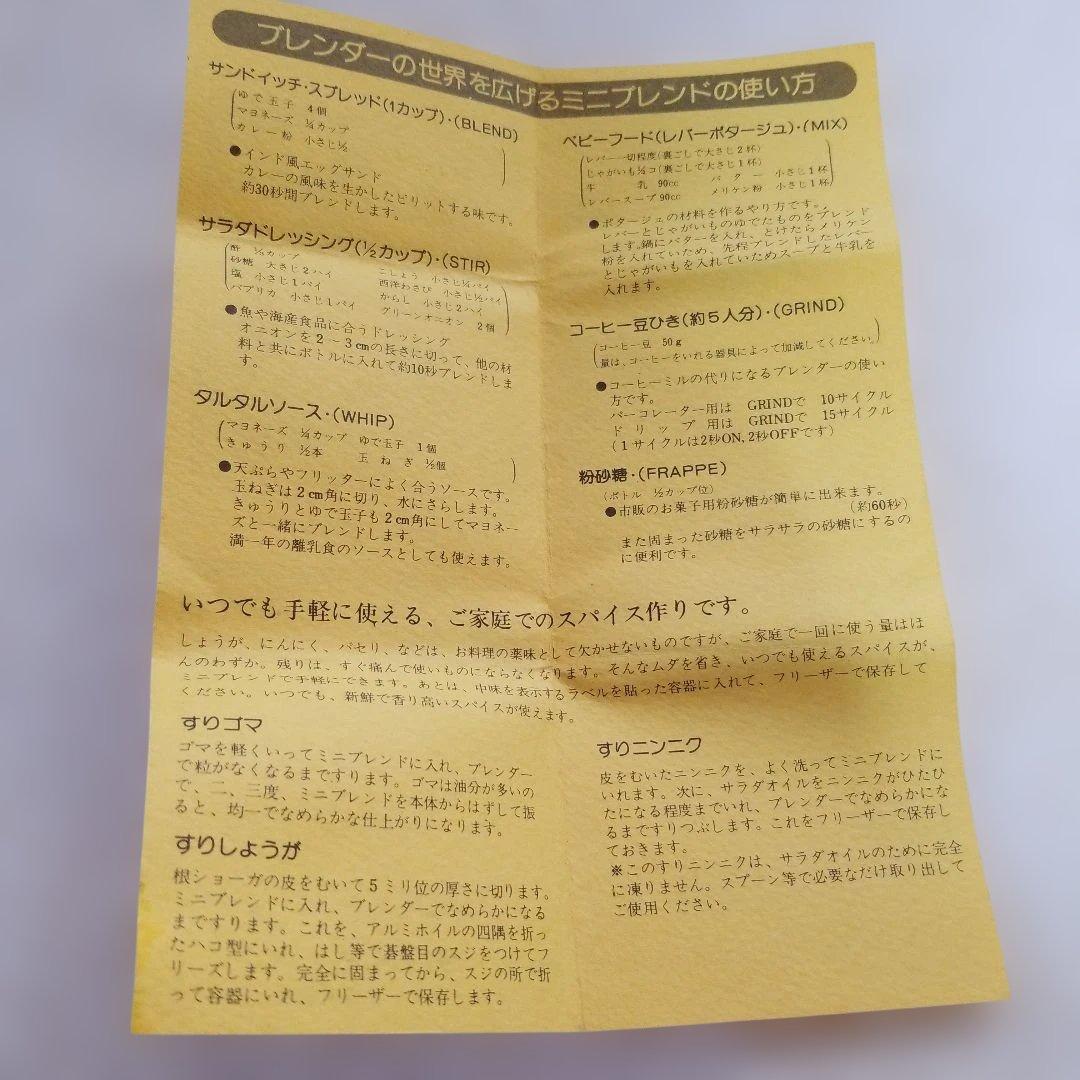 ブレンダーの世界を広げるミニブレンドの使い方
サンドイッチ・スプレッド(1カップ)・(BLEND)
ゆで玉子 4個
マヨネーズ ¼カップ
カレー粉 小さじ½
●インド風エッグサンド
カレーの風味を生かしたピリットする味です。
約30秒間ブレンドします。
サラダドレッシング(½カップ)・(STIR)
酢 カップ
砂糖 大さじ2ハイ
塩 小さじ1パイ
パプリカ 小さじ1パイ
こしょう 小さじ¼パイ
西洋わさび 小さじ½パイ
からし 小さじ2ハイ
グリーンオニオン 2個
●魚や海産食品に合うドレッシング
オニオンを2~3cmの長さに切って、他の材
料と共にボトルに入れて約10秒ブレンドしま
す。
タルタルソース・(WHIP)
マヨネーズ ¼カップ ゆで玉子 1個
きゅうり ½本 玉ねぎ ½個
●天ぷらやフリッターによく合うソースです。
玉ねぎは2cm角に切り、水にさらします。
きゅうりとゆで玉子も2cm角にしてマヨネー
ズと一緒にブレンドします。
満一年の離乳食のソースとしても使えます。
ベビーフード(レバーポタージュ)・(MIX)
レバー一切程度(裏ごしで大さじ2杯)
じゃがいも½コ(裏ごしで大さじ1杯)
牛乳 90cc バター 小さじ1杯
レバースープ90cc メリケン粉 小さじ1杯
●ポタージュの材料を作るやり方です。
レバーとじゃがいものゆでたものをブレンド
します。鍋にバターを入れ、とけたらメリケン
粉を入れていため、先程ブレンドしたレバー
とじゃがいもを入れていためスープと牛乳を
入れます。
コーヒー豆ひき(約5人分)・(GRIND)
コーヒー豆 50g
量は、コーヒーをいれる器具によって加減してください。
●コーヒーミルの代りになるブレンダーの使い
方です。
パーコレーター用は GRINDで 10サイクル
ドリップ用は GRINDで 15サイクル
(1サイクルは2秒ON,2秒OFFです)
粉砂糖・(FRAPPE)
(ボトル ½カップ位)
●市販のお菓子用粉砂糖が簡単に出来ます。
(約60秒)
また固まった砂糖をサラサラの砂糖にするの
に便利です。
いつでも手軽に使える、ご家庭でのスパイス作りです。
しょうが、にんにく、パセリ、などは、お料理の薬味として欠かせないものですが、ご家庭で一回に使う量はほ
んのわずか。残りは、すぐ痛んで使いものにならなくなります。そんなムダを省き、いつでも使えるスパイスが、
ミニブレンドで手軽にできます。あとは、中味を表示するラベルを貼った容器に入れて、フリーザーで保存して
ください。いつでも、新鮮で香り高いスパイスが使えます。
すりゴマ
ゴマを軽くいってミニブレンドに入れ、ブレンダー
で粒がなくなるまですります。ゴマは油分が多いの
で、二、三度、ミニブレンドを本体からはずして振
ると、均一でなめらかな仕上がりになります。
すりしょうが
根ショーガの皮をむいて5ミリ位の厚さに切ります。
ミニブレンドに入れ、ブレンダーでなめらかになる
まですります。これを、アルミホイルの四隅を折っ
たハコ型にいれ、はし等で碁盤目のスジをつけてフ
リーズします。完全に固まってから、スジの所で折
って容器にいれ、フリーザーで保存します。
すりニンニク
皮をむいたニンニクを、よく洗ってミニブレンドに
いれます。次に、サラダオイルをニンニクがひたひ
たになる程度までいれ、ブレンダーでなめらかにな
るまですりつぶします。これをフリーザーで保存し
ておきます。
※このすりニンニクは、サラダオイルのために完全
に凍りません。スプーン等で必要なだけ取り出して
ご使用ください。